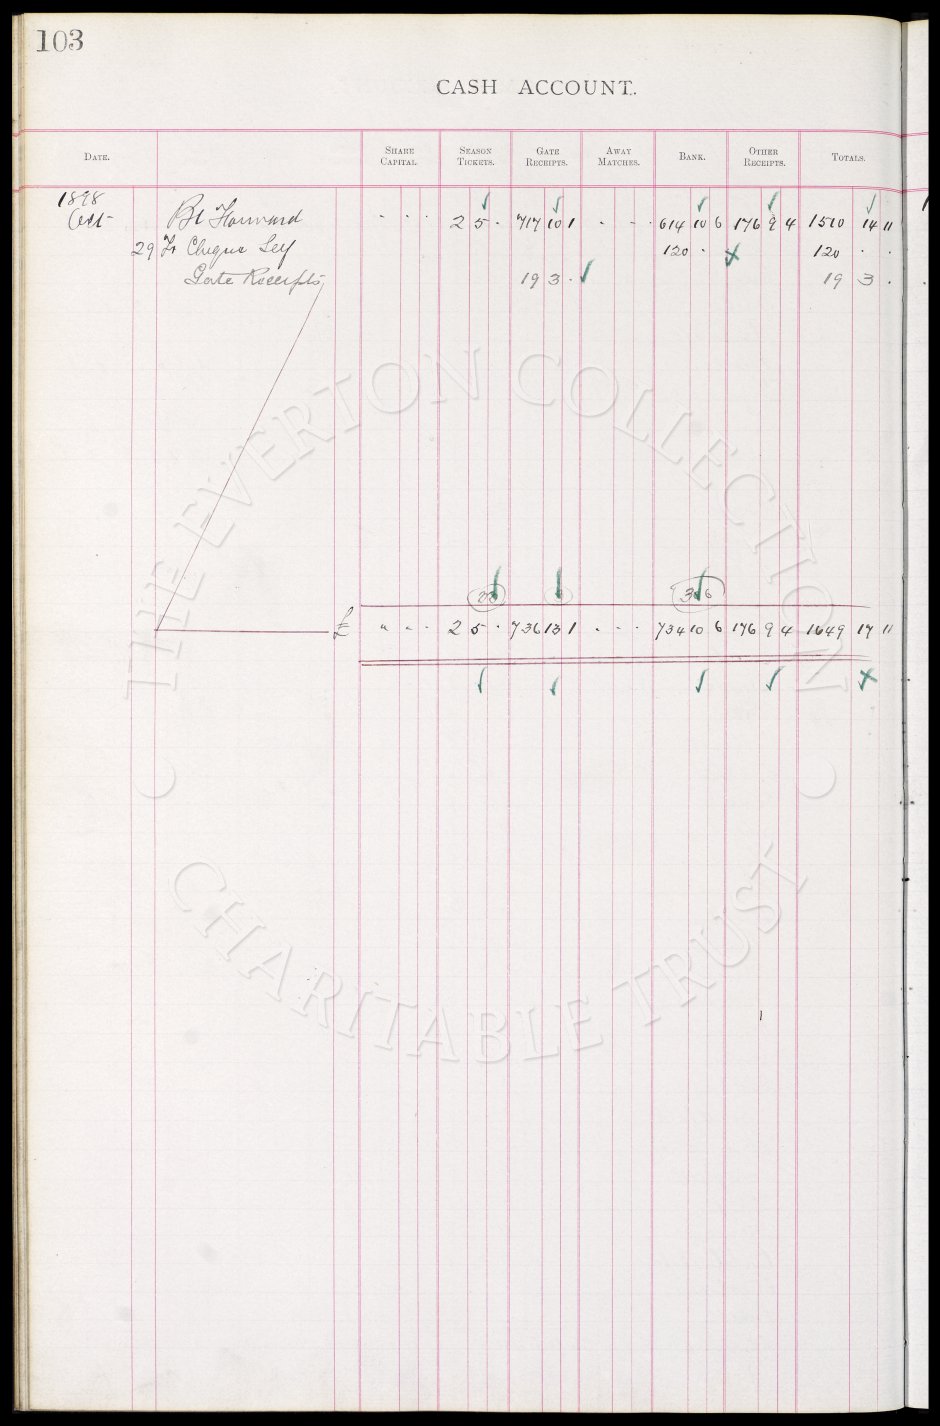 103
CASH ACCOUNT.
DATE. SHARE CAPITAL. SEASON TICKETS. GATE RECEIPTS. AWAY MATCHES. BANK. OTHER RECEIPTS. TOTALS.
1898
Oct Bt Forward - - - 2 5 - 717 10 1 - - - 614 10 6 176 9 4 1510 14 11
29 To Cheque Self 120 - - 120 - -
Gate Receipts 19 3 - 19 3 -
£ " - - 2 5 - 736 13 1 - - - 734 10 6 176 9 4 1649 17 11
THE EVERTON COLLECTION
CHARITABLE TRUST